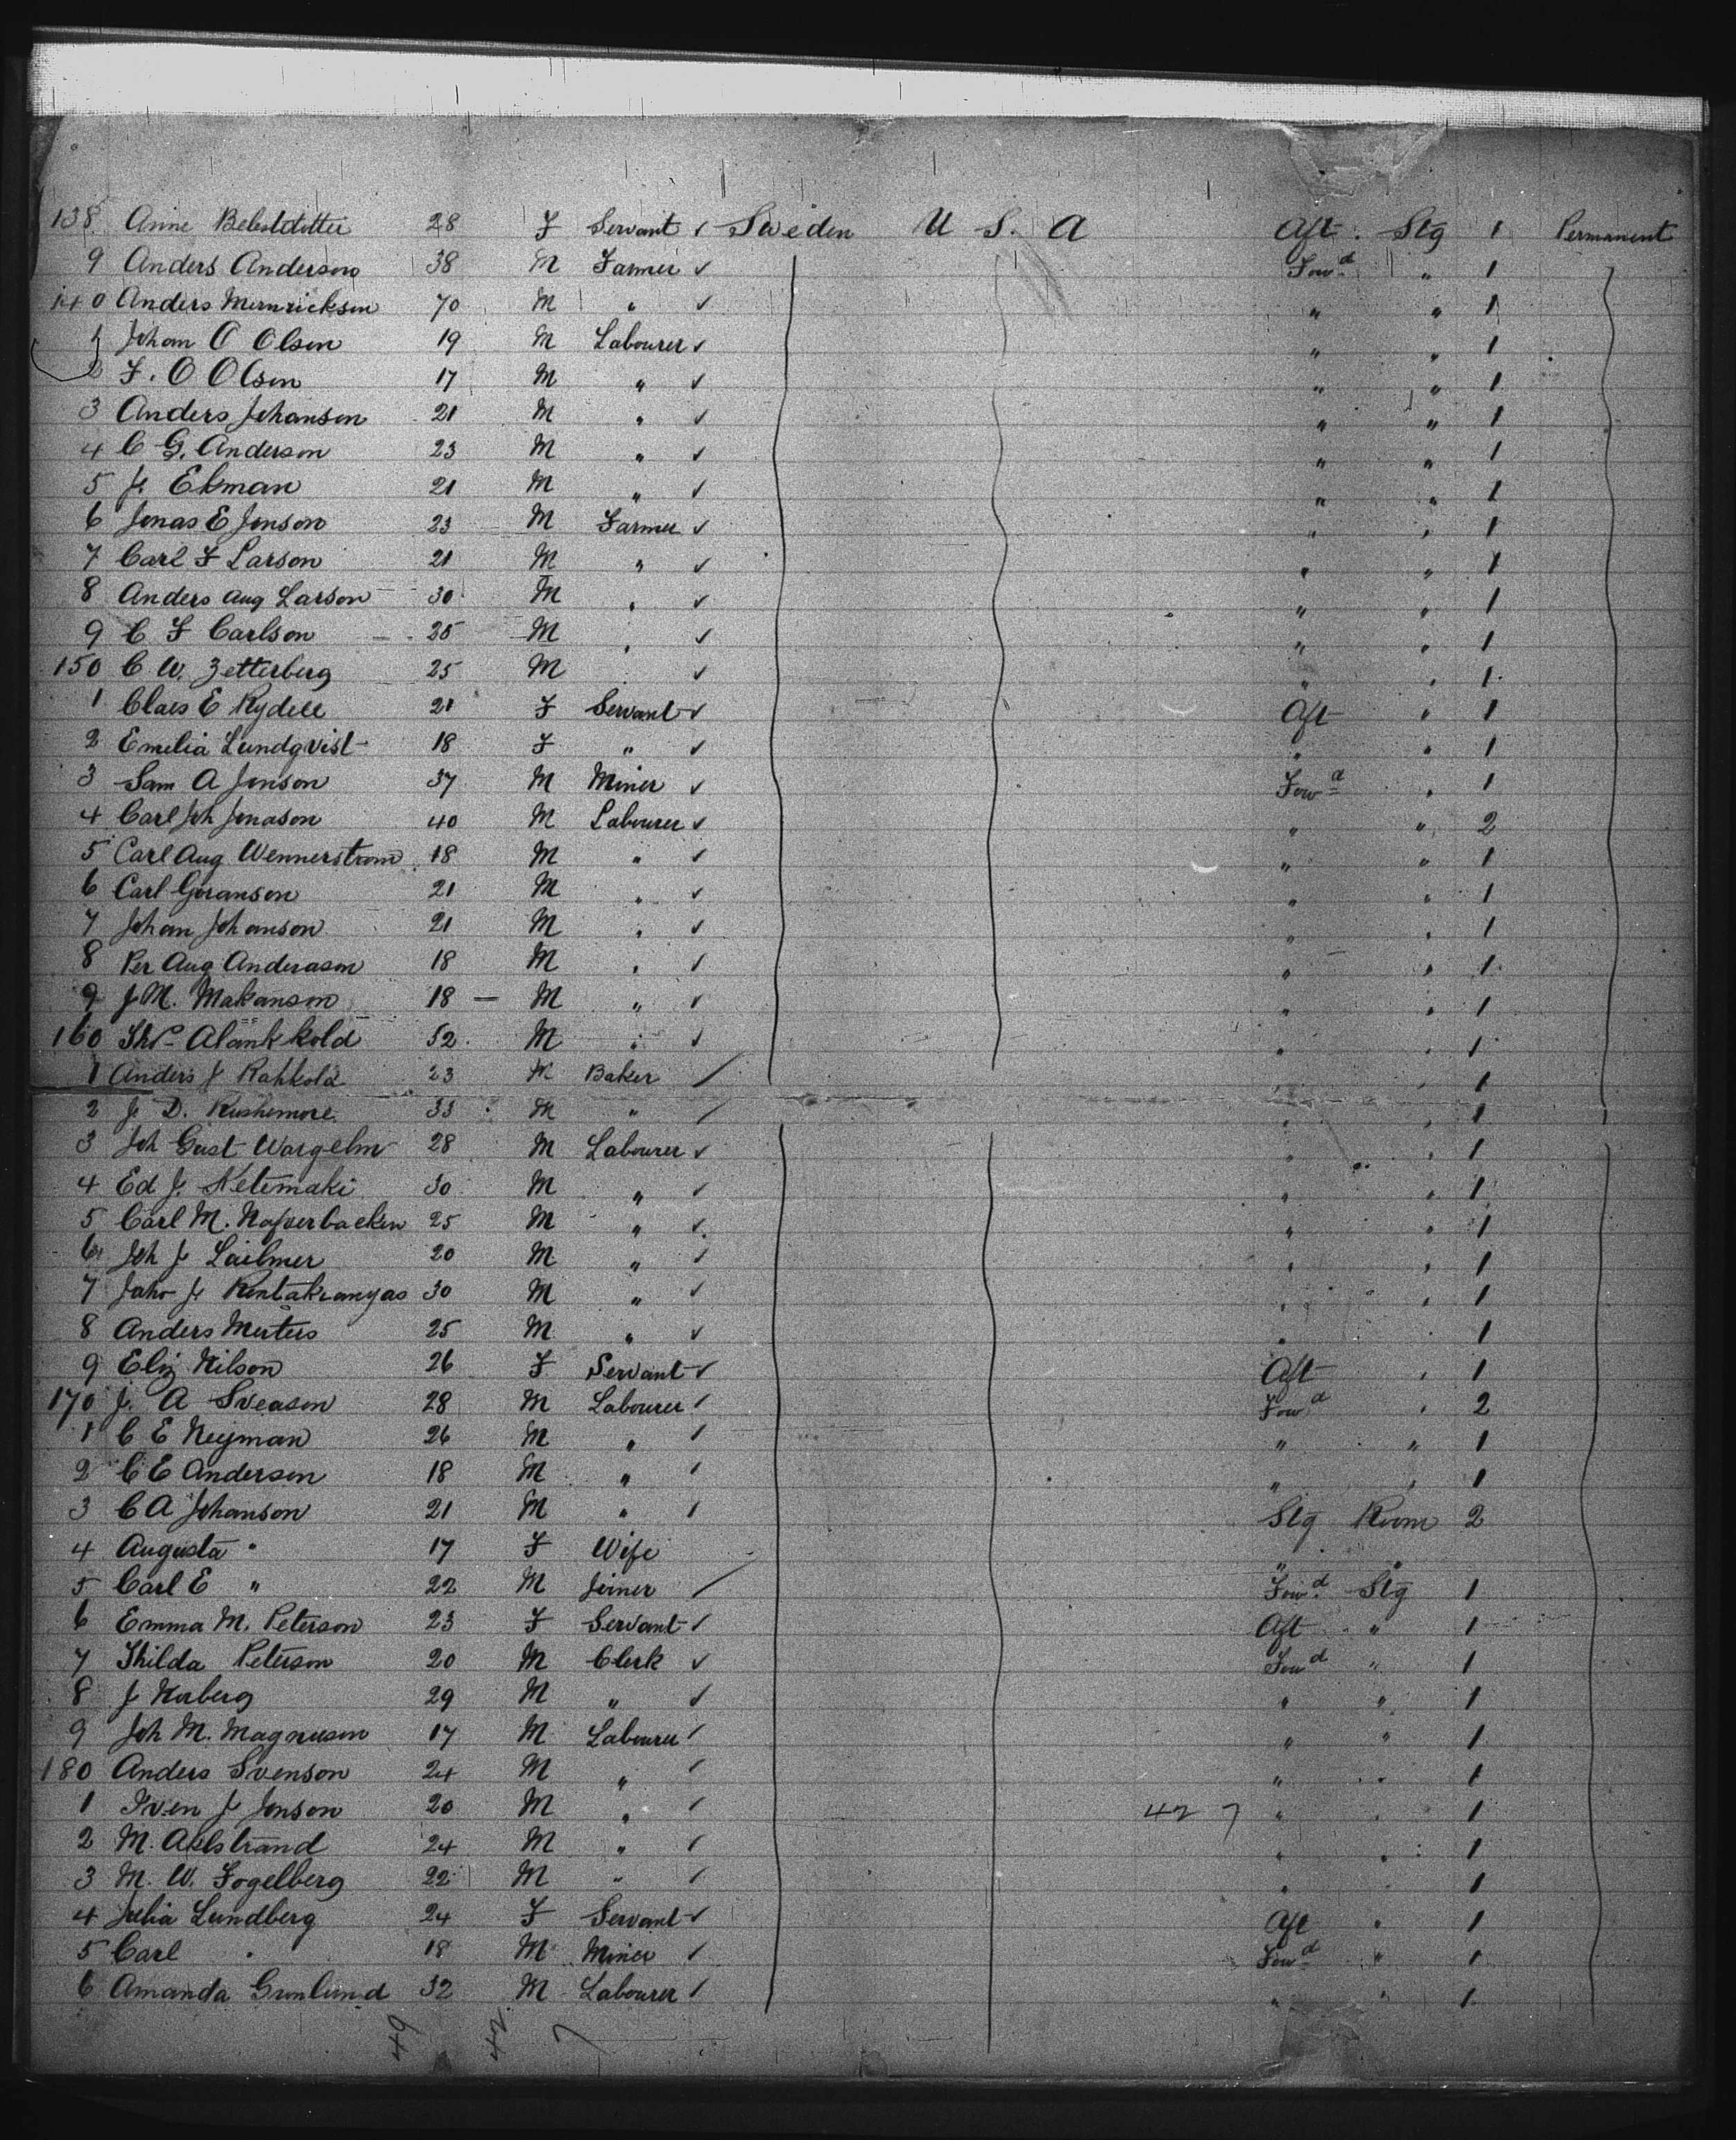 138 Anne 28 F Servant ✓ Sweden U S. A Aft. Stg 1 Permanent
9 Anders Anderson 38 M Farmer ✓ Fowd " 1
140 Anders 70 M " ✓ " " 1
1 Johan O Olsen 19 M Labourer ✓ " " 1
2 F. O Olsen 17 M " ✓ " " 1
3 Anders Johanson 21 M " ✓ " " 1
4 C G. Anderson 23 M " ✓ " " 1
5 J. Ekman 21 M " ✓ " " 1
6 Jonas E Jonson 23 M Farmer ✓ " " 1
7 Carl F Larson 21 M " ✓ " " 1
8 Anders Aug Larson 30 M " ✓ " " 1
9 C F Carlson 25 M " ✓ " " 1
150 C W. Zetterberg 25 M ✓ " " 1
1 Claes E Rydell 21 F Servant ✓ Aft " 1
2 Emelia Lundqvist 18 F " ✓ " " 1
3 Sam A Jonson 37 M Miner ✓ Fowd " 1
4 Carl Joh Jonason 40 M Labourer ✓ " " 2
5 Carl Aug Wennerstrom 18 M " ✓ " " 1
6 Carl Goranson 21 M " ✓ " " 1
7 Johan Johanson 21 M " ✓ " " 1
8 Per Aug Anderason 18 M " ✓ " " 1
9 J M. Makanson 18 — M " ✓ " " 1
160 Alankkold 52 M " ✓ " " 1
1 Anders J Rahkola 23 M Baker ✓ " " 1
2 J. D. Rushemore 33 M " ✓ " " 1
3 Joh Gust Wargelin 28 M Labourer ✓ " " 1
4 Ed J. Ketemaki 30 M " ✓ " " 1
5 Carl M. 25 M " ✓ " " 1
6 Joh J 20 M " ✓ " " 1
7 J 30 M " ✓ " " 1
8 Anders 25 M " ✓ " " 1
9 Eliz Nilson 26 F Servant ✓ Aft " 1
170 J. A Sveason 28 M Labourer ✓ Fowd " 2
1 C E Neyman 26 M " ✓ " " 1
2 C E Anderson 18 M " ✓ " " 1
3 C A Johanson 21 M " ✓ Stg Room 2
4 Augusta " 17 F Wife " "
5 Carl E " 22 M Joiner ✓ Fowd Stg 1
6 Emma M. Peterson 23 F Servant ✓ Aft " 1
7 Peterson 20 M Clerk ✓ Fowd " 1
8 J Norberg 29 M " ✓ " " 1
9 Joh M. Magnuson 17 M Labourer ✓ " " 1
180 Anders Svenson 24 M " ✓ " " 1
1 Sven J Jonson 20 M " ✓ 42 7 " " 1
2 M. Ahlstrand 24 M " ✓ " " 1
3 M. W. Fogelberg 22 M " ✓ " " 1
4 Julia Lundberg 24 F Servant ✓ Aft " 1
5 Carl " 18 M Miner ✓ Fowd " 1
6 Amanda Gronlund 32 M Labourer ✓ " " 1
49 42 7